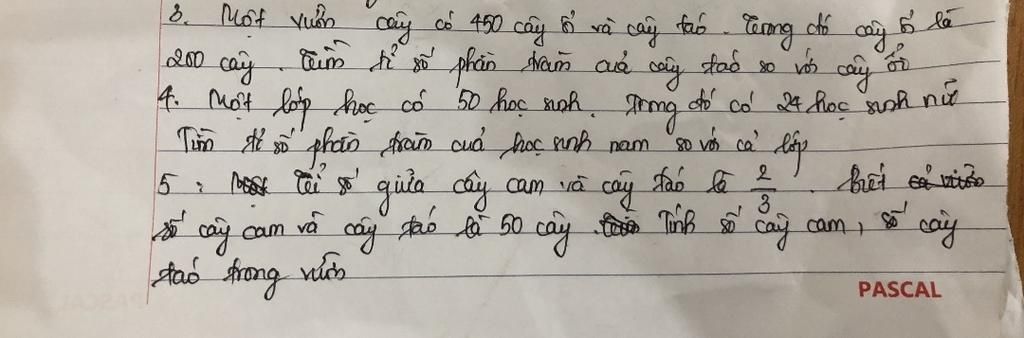 3. Một vườn cây có 450 cây ổi và cây táo. Trong đó cây ổi là
200 cây. Tìm tỉ số phần trăm của cây táo so với cây ổi
4. Một lớp học có 50 học sinh. Trong đó có 24 học sinh nữ
Tìm tỉ số phần trăm của học sinh nam so với cả lớp
5: Tỉ số giữa cây cam và cây táo là 2/3. Biết
số cây cam và cây táo là 50 cây. Tính số cây cam, số cây
táo trong vườn
PASCAL
PASCAL